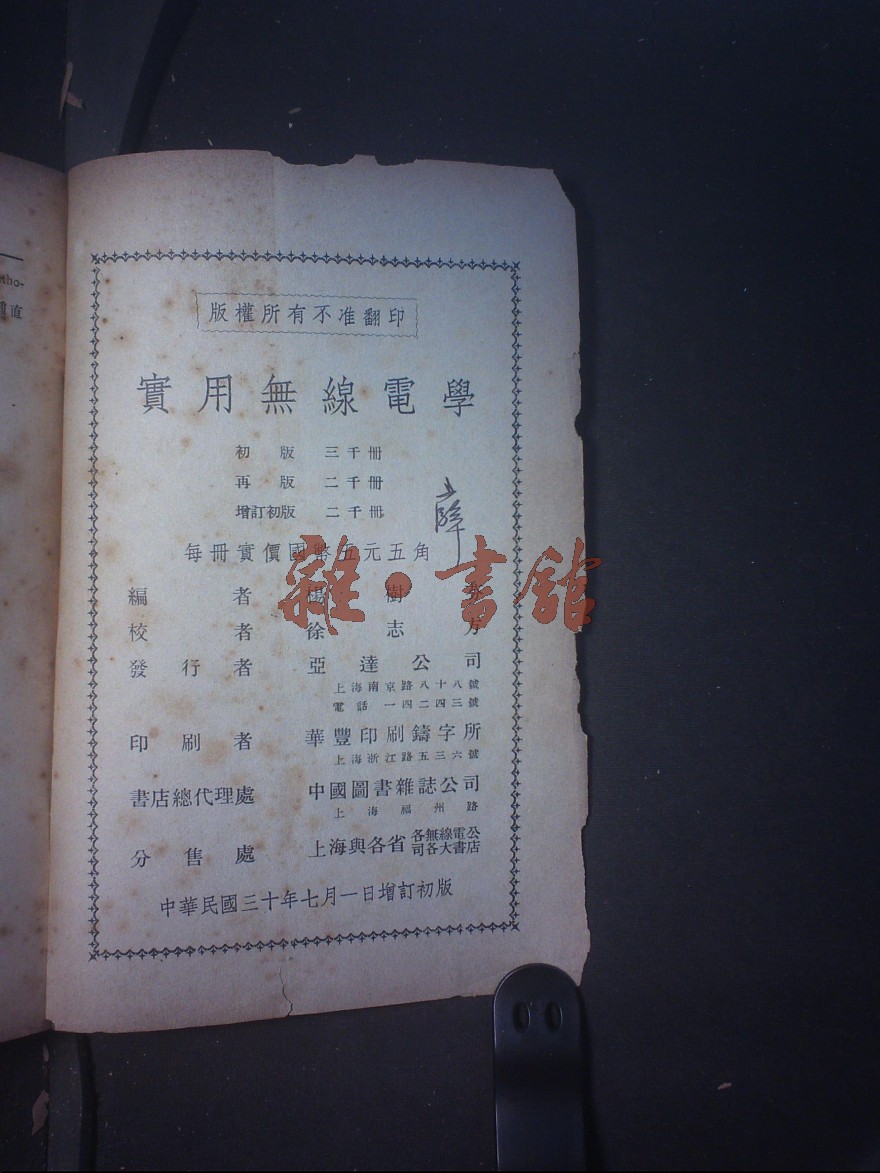 tho-
直
版權所有不准翻印
實用無線電學
初版 三千冊
再版 二千冊
增訂初版 二千冊
每冊實價國幣五元五角
編者 楊樹
校者 徐志方
發行者 亞達公司
上海南京路八十八號
電話一四二四三號
印刷者 華豐印刷鑄字所
上海浙江路五三六號
書店總代理處 中國圖書雜誌公司
上海福州路
分售處 上海與各省各無線電公司各大書店
中華民國三十年七月一日增訂初版
雜·書館